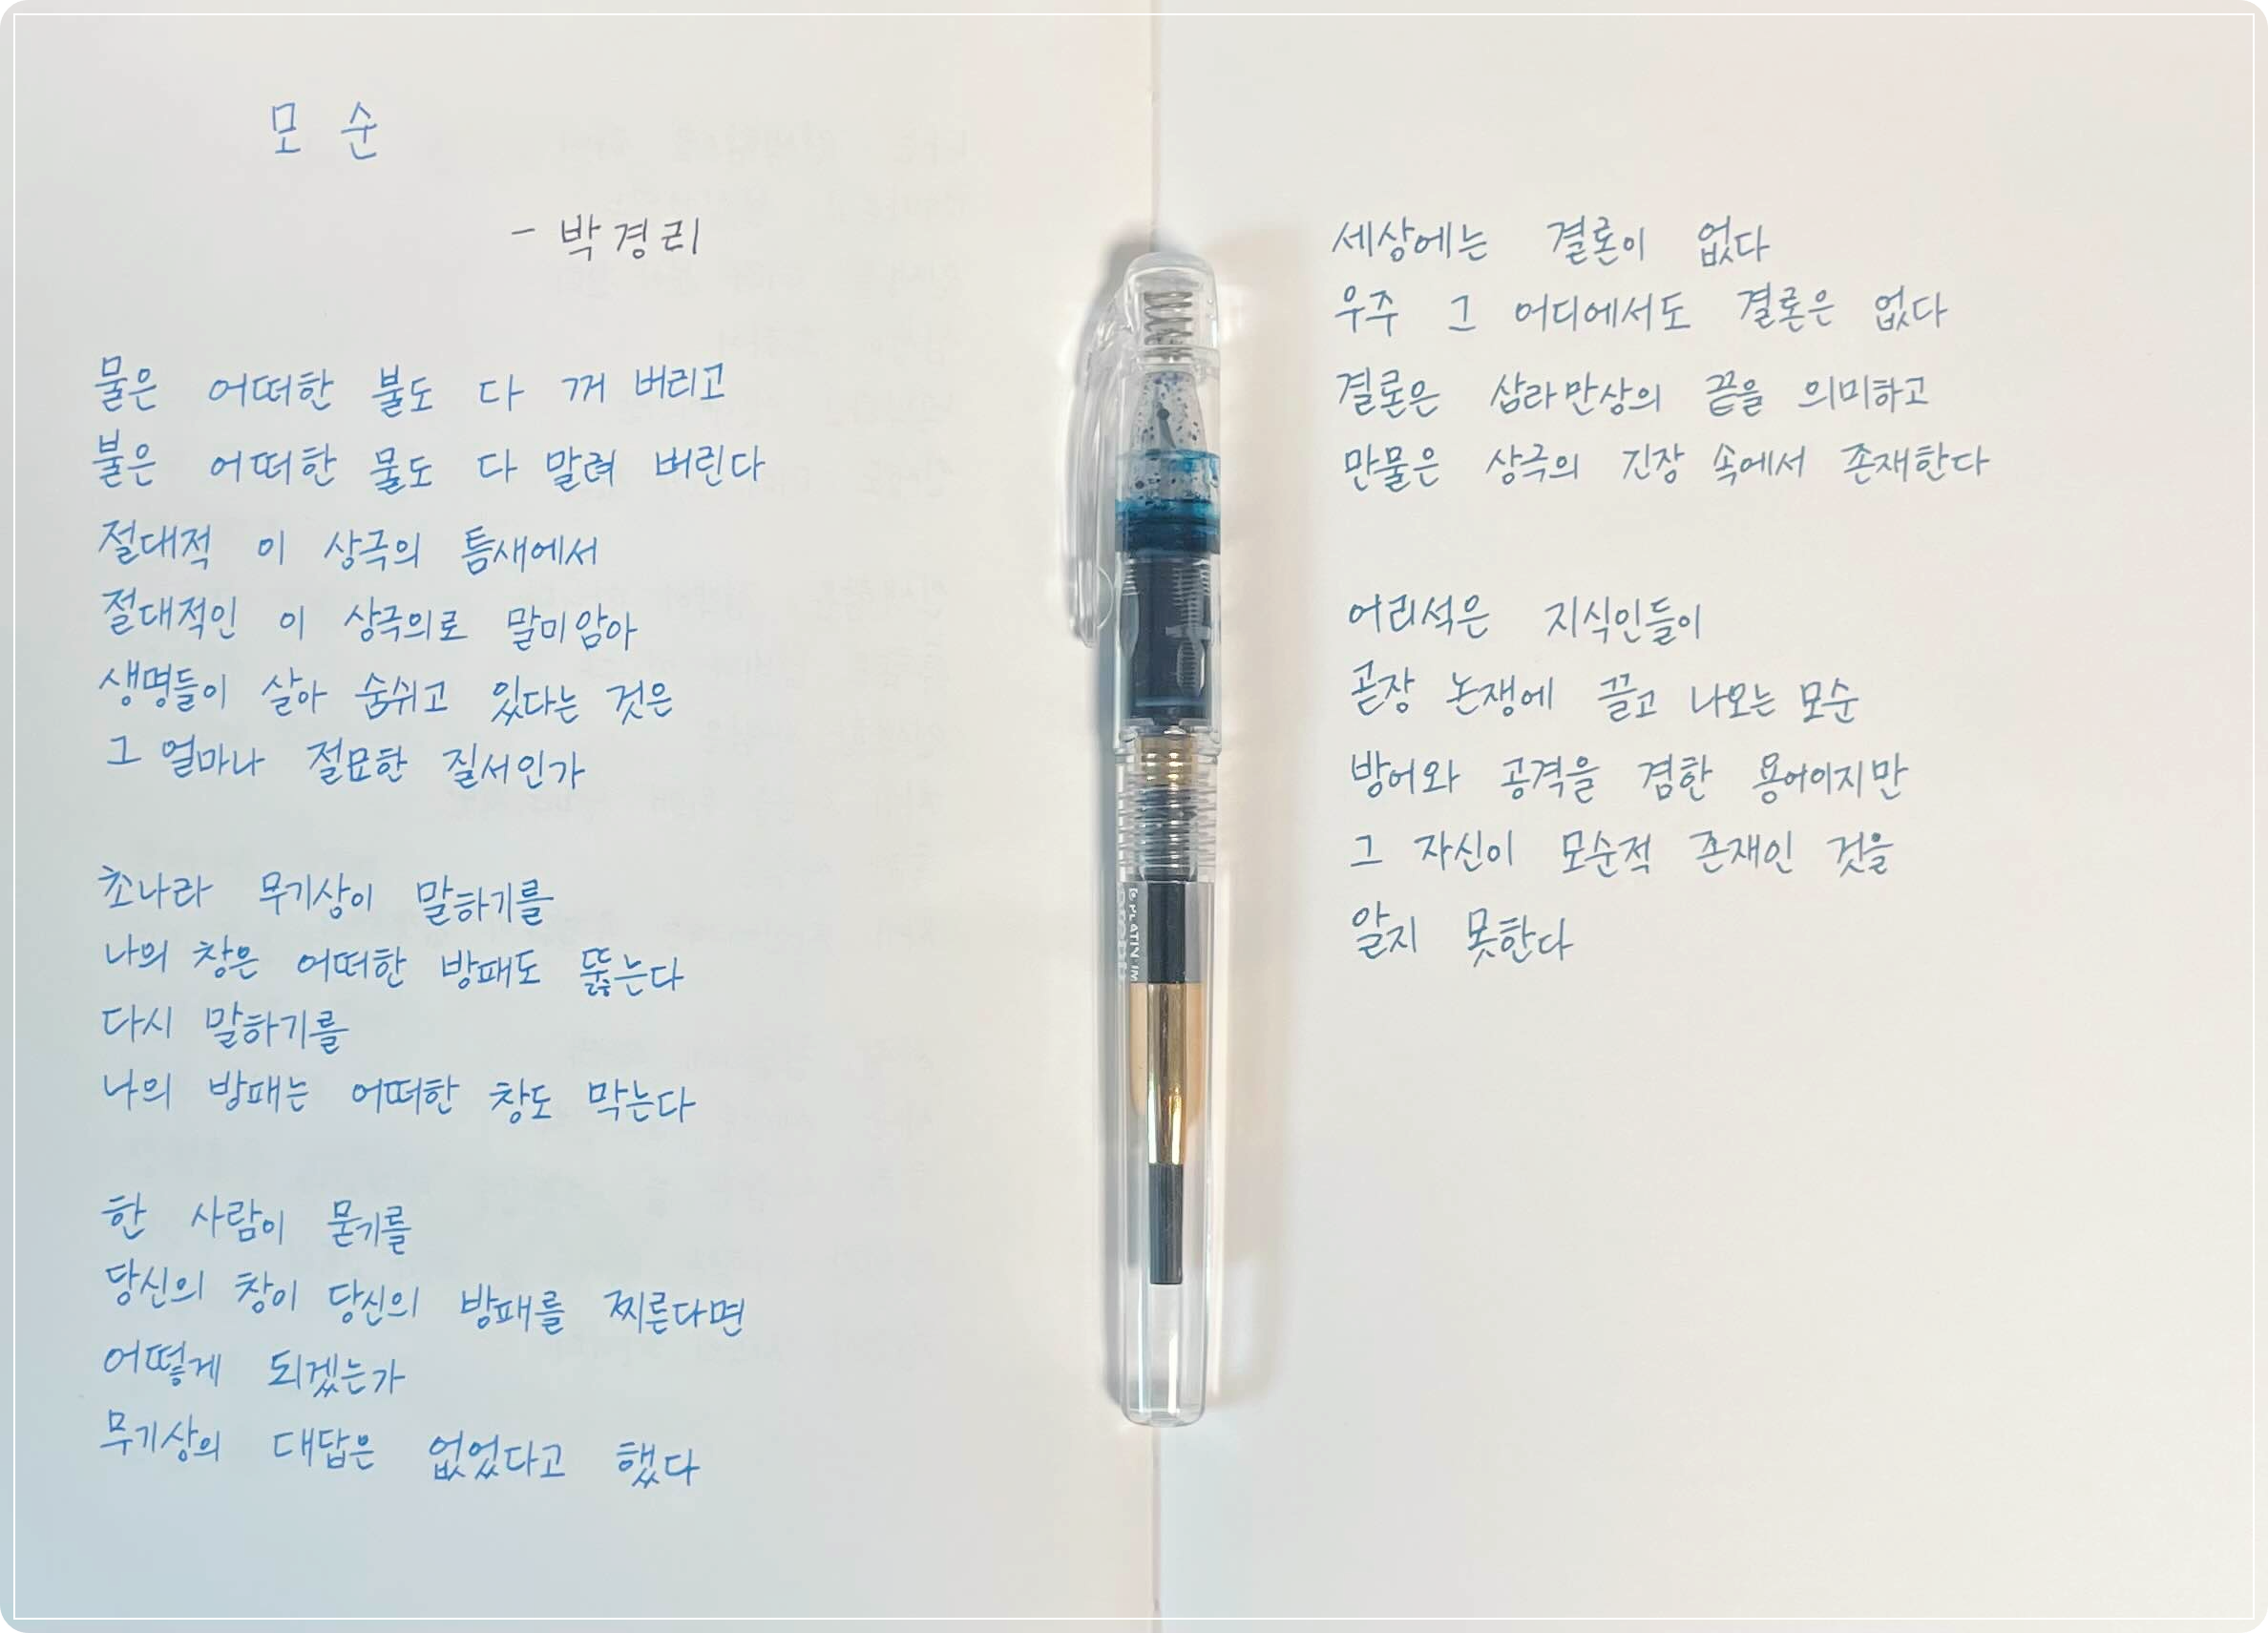 모순
- 박경리
물은 어떠한 불도 다 꺼 버리고
불은 어떠한 물도 다 말려 버린다
절대적 이 상극의 틈새에서
절대적인 이 상극의로 말미암아
생명들이 살아 숨쉬고 있다는 것은
그 얼마나 절묘한 질서인가
초나라 무기상이 말하기를
나의 창은 어떠한 방패도 뚫는다
다시 말하기를
나의 방패는 어떠한 창도 막는다
한 사람이 묻기를
당신의 창이 당신의 방패를 찌른다면
어떻게 되겠는가
무기상의 대답은 없었다고 했다
세상에는 결론이 없다
우주 그 어디에서도 결론은 없다
결론은 삼라만상의 끝을 의미하고
만물은 상극의 긴장 속에서 존재한다
어리석은 지식인들이
곧장 논쟁에 끌고 나오는 모순
방어와 공격을 겸한 용어이지만
그 자신이 모순적 존재인 것을
알지 못한다
PLATINUM